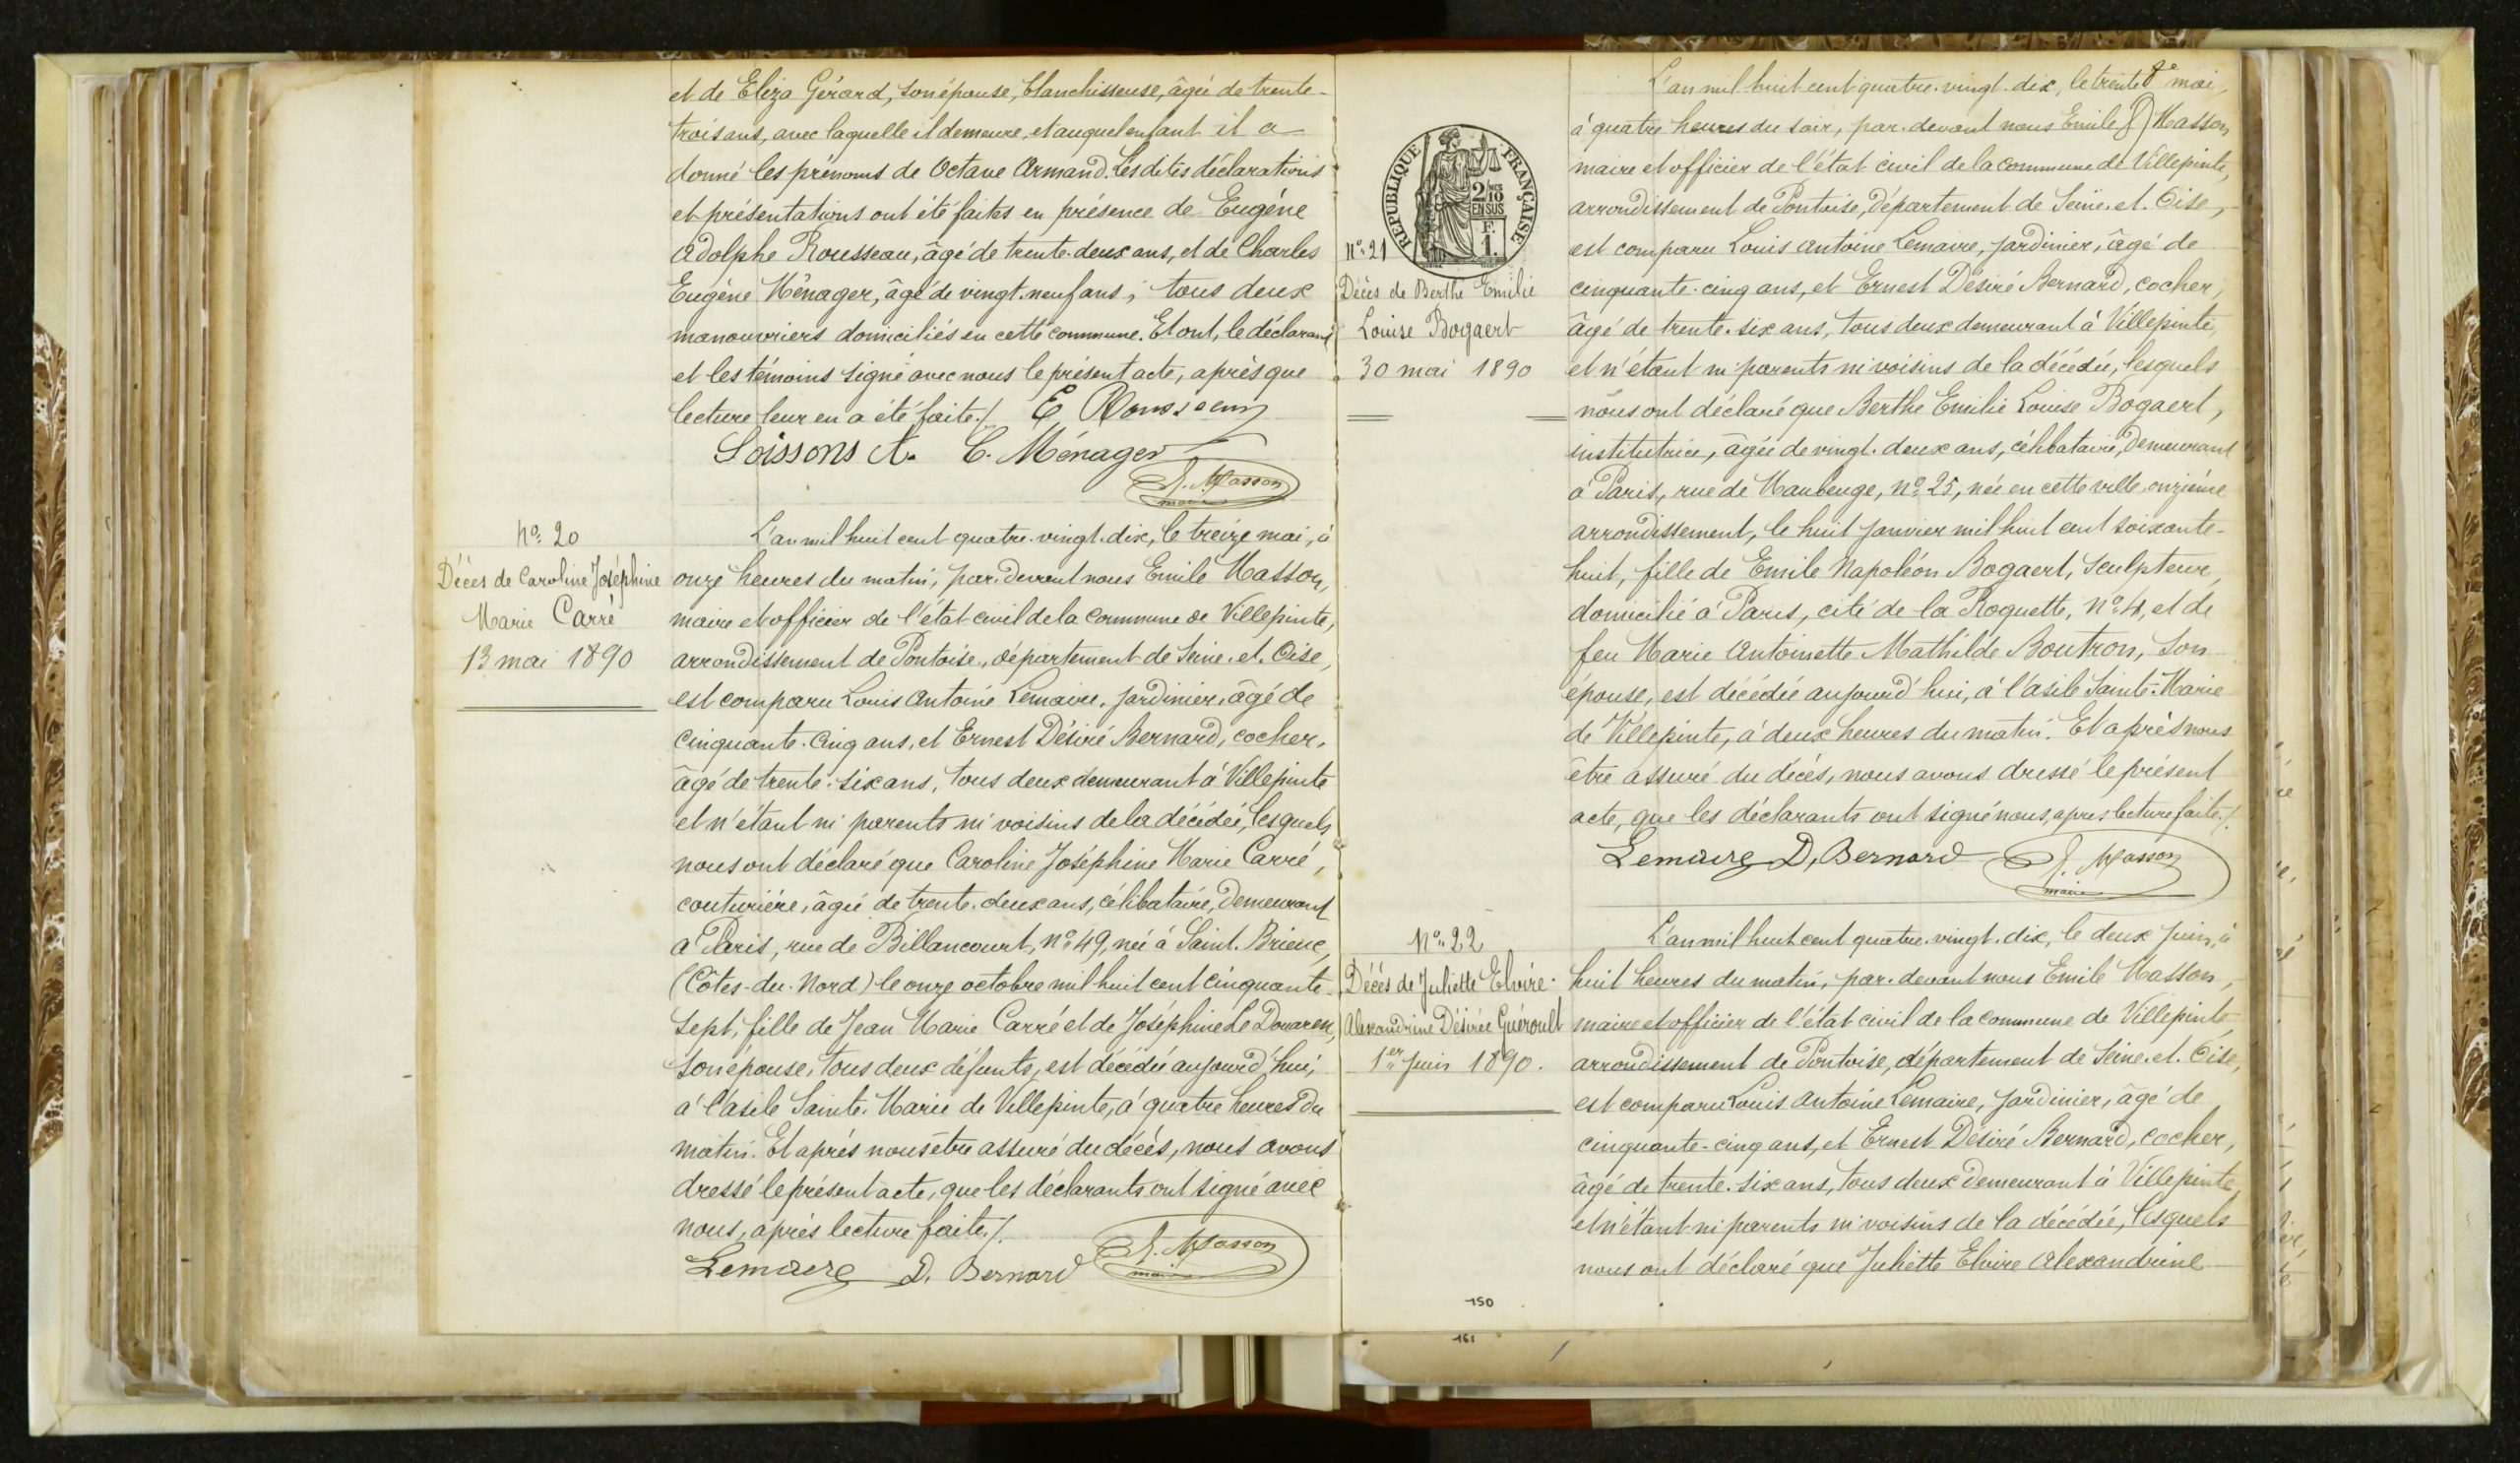 et de Eliza Gérard, son épouse, blanchisseuse, âgée de trente-
trois ans, avec laquelle il demeure, et auquel enfant il a
donné les prénoms de Octave Armand. Les dites déclarations
et présentations ont été faites en présence de Eugène
Adolphe Rousseau, âgé de trente-deux ans, et de Charles
Eugène Ménager, âgé de vingt-neuf ans, tous deux
manouvriers domiciliés en cette commune. Et ont, le déclarant
et les témoins signé avec nous le présent acte, après que
lecture leur en a été faite./. E Rousseau
Soissons A. C. Ménager
E. Masson
maire
No. 20
Décès de Caroline Joséphine
Marie Carré
13 mai 1890
L'an mil huit cent quatre-vingt-dix, le treize mai, à
onze heures du matin, par-devant nous Emile Masson,
maire et officier de l'état civil de la commune de Villepinte,
arrondissement de Pontoise, département de Seine-et-Oise,
est comparu Louis Antoine Lemaire, jardinier, âgé de
cinquante-cinq ans, et Ernest Désiré Bernard, cocher,
âgé de trente-six ans, tous deux demeurant à Villepinte
et n'étant ni parents ni voisins de la décédée, lesquels
nous ont déclaré que Caroline Joséphine Marie Carré,
couturière, âgée de trente-deux ans, célibataire, demeurant
à Paris, rue de Billancourt, no. 49, née à Saint-Brieuc,
(Côtes-du-Nord) le onze octobre mil huit cent cinquante-
sept, fille de Jean Marie Carré et de Joséphine Le Douaren,
son épouse, tous deux défunts, est décédée aujourd'hui,
à l'asile Sainte-Marie de Villepinte, à quatre heures du
matin. Et après nous être assuré du décès, nous avons
dressé le présent acte, que les déclarants ont signé avec
nous, après lecture faite./.
Lemaire D. Bernard E. Masson
maire
RÉPUBLIQUE FRANÇAISE
2/10
EN SUS
F.
1.
No. 21
Décès de Berthe Emilie
Louise Bogaert
30 mai 1890
L'an mil huit cent quatre-vingt-dix, le trente mai,
à quatre heures du soir, par-devant nous Emile Masson
maire et officier de l'état civil de la commune de Villepinte,
arrondissement de Pontoise, département de Seine-et-Oise,
est comparu Louis Antoine Lemaire, jardinier, âgé de
cinquante-cinq ans, et Ernest Désiré Bernard, cocher,
âgé de trente-six ans, tous deux demeurant à Villepinte,
et n'étant ni parents ni voisins de la décédée, lesquels
nous ont déclaré que Berthe Emilie Louise Bogaert,
institutrice, âgée de vingt-deux ans, célibataire, demeurant
à Paris, rue de Maubeuge, no. 25, née en cette ville, onzième
arrondissement, le huit janvier mil huit cent soixante-
huit, fille de Emile Napoléon Bogaert, sculpteur,
domicilié à Paris, cité de la Roquette, no. 4, et de
feu Marie Antoinette Mathilde Boutron, son
épouse, est décédée aujourd'hui, à l'asile Sainte-Marie
de Villepinte, à deux heures du matin. Et après nous
être assuré du décès, nous avons dressé le présent
acte, que les déclarants ont signé nous, après lecture faite./.
Lemaire D. Bernard E. Masson
maire
No. 22
Décès de Juliette Elvire
Alexandrine Désirée Guéroult
1er juin 1890.
L'an mil huit cent quatre-vingt-dix, le deux juin, à
huit heures du matin, par-devant nous Emile Masson,
maire et officier de l'état civil de la commune de Villepinte
arrondissement de Pontoise, département de Seine-et-Oise,
est comparu Louis Antoine Lemaire, jardinier, âgé de
cinquante-cinq ans, et Ernest Désiré Bernard, cocher,
âgé de trente-six ans, tous deux demeurant à Villepinte,
et n'étant ni parents ni voisins de la décédée, lesquels
nous ont déclaré que Juliette Elvire Alexandrine
150
161